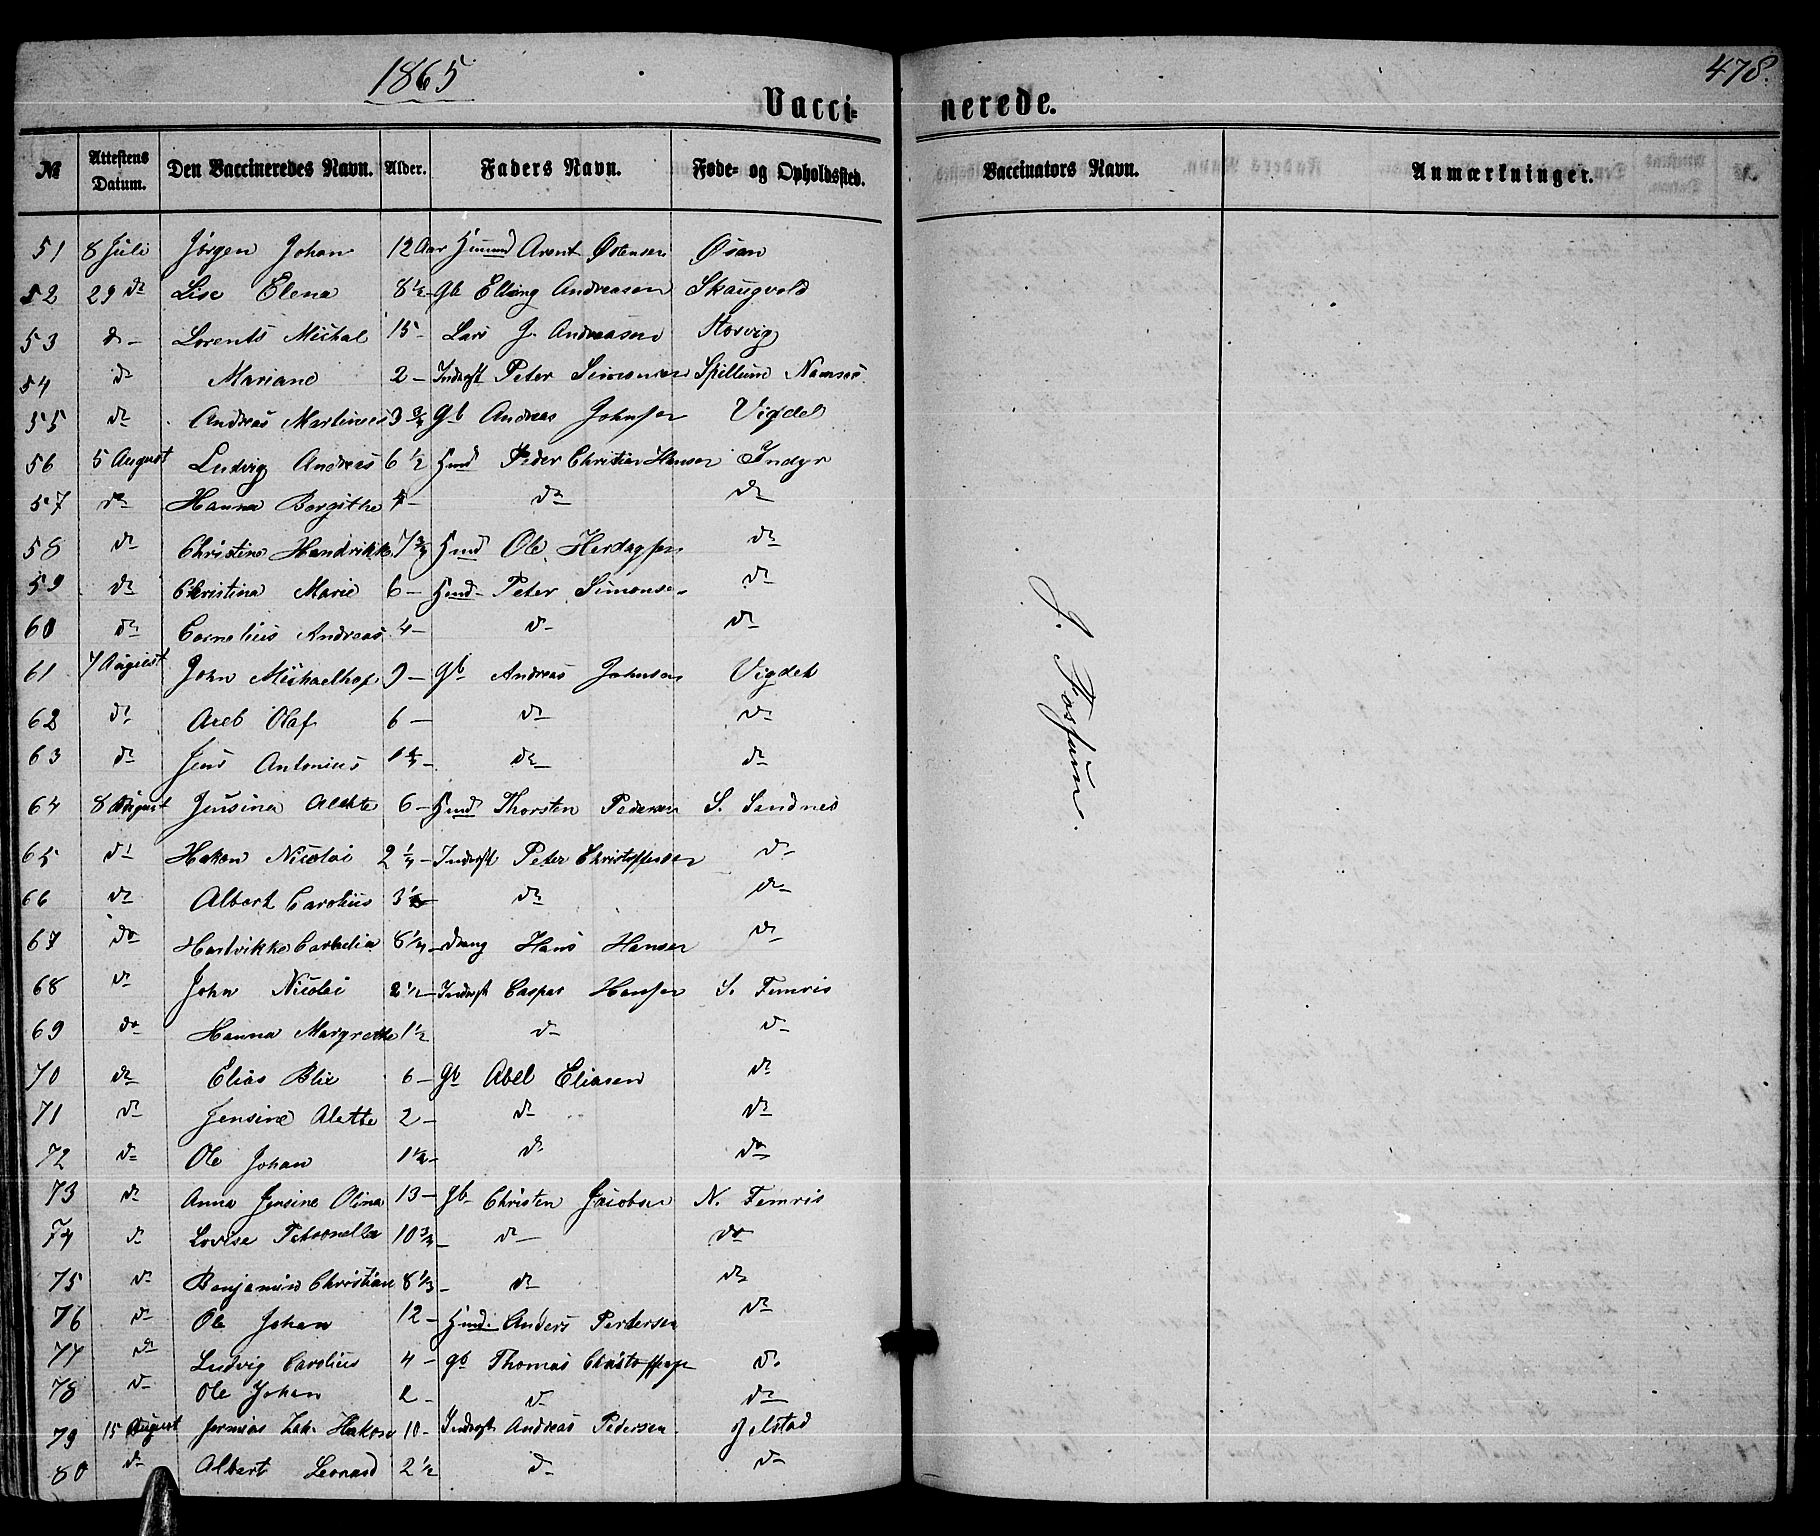 1865
478.
Vaccinerede.
No Attestens Datum. Den Vaccineredes Navn. Alder. Faders Navn. Føde- og Opholdssted. Vaccinators Navn. Anmærkninger.
51 8 Juli Jørgen Johan 12 Aar Arent Østensen Øsan
52 29 do Lise Elena 8 1/2 - Gb Elling Andreasen Skaugvold
53 do - Lorents Michal 15 - Lars J. Andreasen Storvig
54 do Mariane 2 - Inderst Peter Simonsen Spillum Namsos
55 do Andreas Martinus 3 3/4 Gb Andreas Johnsen
56 5 August Ludvig Andreas 6 1/2 Hmd Peder Christian Hansen
57 do Hanna Bergithe 4 - do do
58 do Christine Hendrikke 7 3/4 Hmd Ole Herdagsen do
59 do Christina Marie 6 - Hmd - Peter Simonsen do
60 do Cornelius Andreas 4 - do do
61 7 August John Michael 9 - Gb Andreas Johnsen
62 do Axel Olaf 6 - do do
63 do Jens Antonius do do
64 8 August Jensine Alette 6 - Hmd Thorsten Pedersen S. Sandnes
65 do Hakon Nicolai 2 1/4 - Inderst Peter Christoffersen do
66 do Albert Carolius 3 do do
67 do Hartvikke Cornelia 8 1/4 - Hans Hansen do
68 do John Nicolai 2 1/2 - Inderst Caspar Hansen S. Finvis
69 do Hanna Margrethe 1 1/2 do do
70 do Elias Blix 6 - Gb Abel Eliasen do
71 do Jensine Alette 2 - do do
72 do Ole Johan 1 1/2 - do do
73 do Anna Jensine Olina 13 - Gb Christen Jacobsen N. Finvis
74 do Lovise Petronella 10 3/4 - do do
75 do Benjamin Christian 8 1/3 - do do
76 do Ole Johan 12 - Hmd. Anders Pedersen do
77 do Ludvig Carolius 4 - Gb Thomas Christoffersen do
78 do Ole Johan 2 - do do
79 15 August Jermias Zak. Hakon 10 - Inderst Andreas Pedersen Jelstad
80 do Albert Leonard 2 1/2 do do
J. Fosfum.